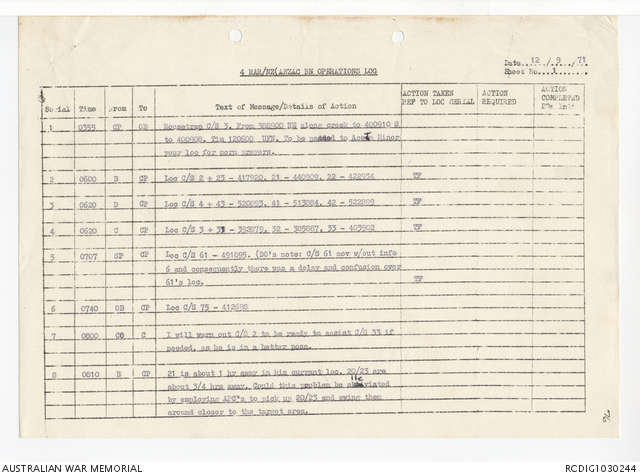 4 RAR/NZ(ANZAC BN OPERATIONS LOG
Date 12 / 9 / 71
Sheet No. 1
Serial Time From To Text of Message/Details of Action ACTION TAKEN REF TO LOG SERIAL ACTION REQUIRED ACTION COMPLETED
1 0355 CP OB Mousetrap C/S 3. From 388900 NE along creek to 400910 S
to 400908. Tim 120800 UFN. To be passed to Acacia Minor
your loc for morn prayers.
2 0600 B CP Loc C/S 2 + 23 - 417920, 21 - 440909, 22 - 422934 TF
3 0620 D CP Loc C/S 4 + 43 - 520893, 41 - 513884, 42 - 522889 TF
4 0620 C CP Loc C/S 3 + 31 - 392879, 32 - 385887, 33 - 403902 TF
5 0707 SP CP Loc C/S 61 - 491895. (DO's note: C/S 61 mov w/out info
6 and consequently there was a delay and confusion over
61's loc. TF
6 0740 OB CP Loc C/S 75 - 412688
7 0800 CO C I will warn out C/S 2 to be ready to assist C/S 33 if
needed, as he is in a better posn.
8 0810 B CP 21 is about 1 hr away in his current loc. 20/23 are
about 3/4 hrs away. Could this problem be alleviated
by employing APC's to pick up 20/23 and swing them
around closer to the target area.
AUSTRALIAN WAR MEMORIAL
RCDIG1030244